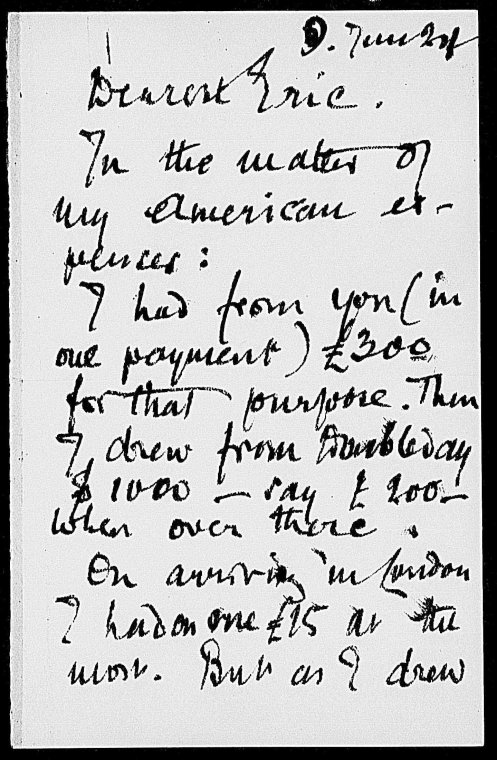 9. June 24
Dearest Eric.
In the matter of
my American ex-
pences:
I had from you (in
one payment) £300
for that purpose. Then
I drew from Doubleday
$ 1000 — say £ 200—
when over there.
On arriving in London
I had on me £15 at the
most. But as I drew